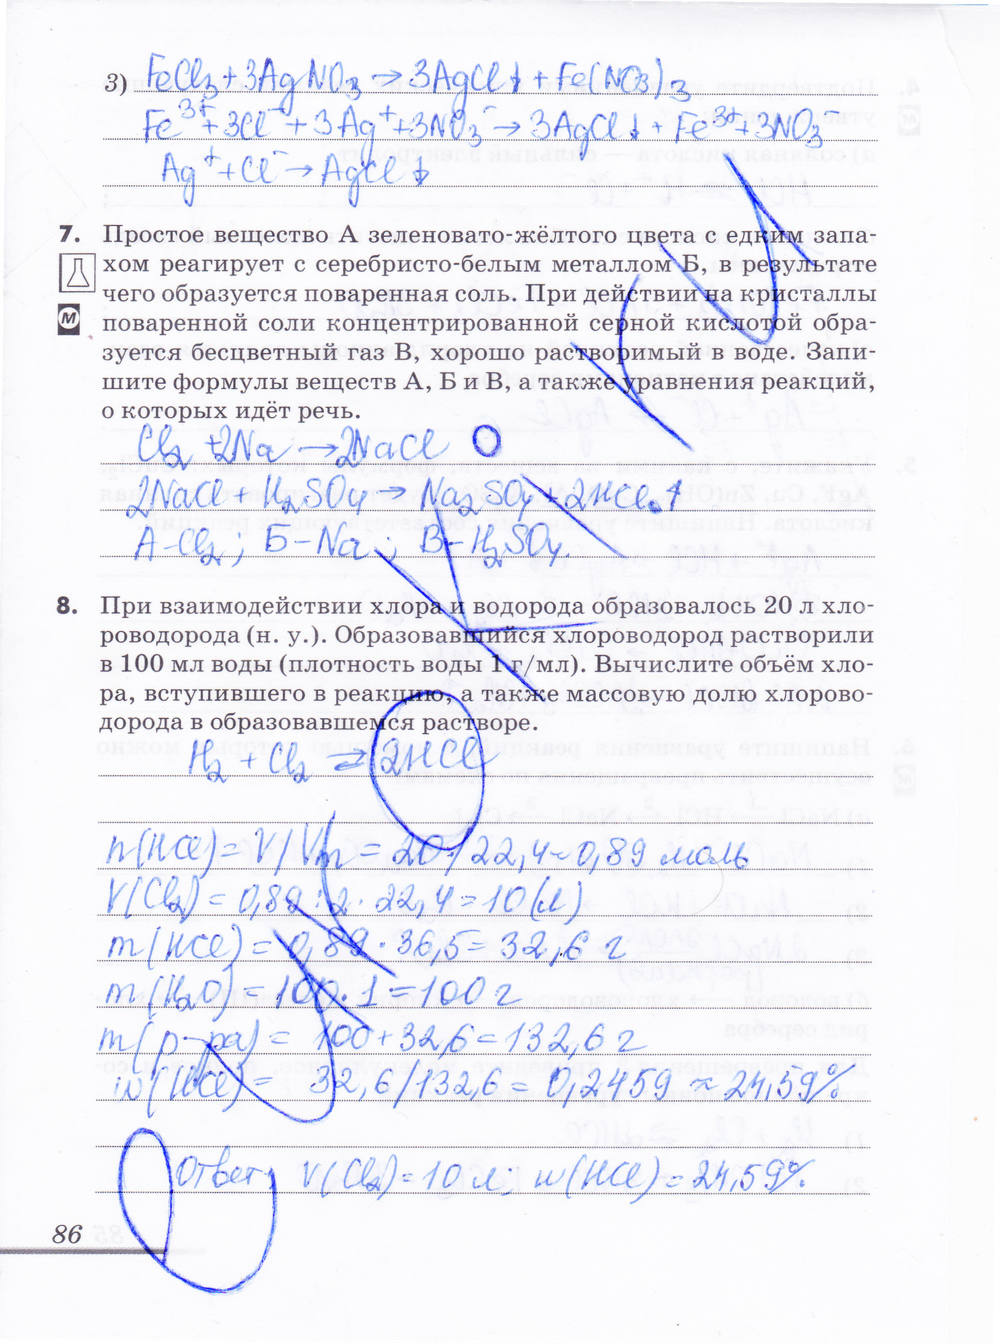 3) FeCl3 + 3AgNO3 → 3AgCl↓ + Fe(NO3)3
Fe³⁺ + 3Cl⁻ + 3Ag⁺ + 3NO3⁻ → 3AgCl↓ + Fe³⁺ + 3NO3⁻
Ag⁺ + Cl⁻ → AgCl↓
7. Простое вещество А зеленовато-жёлтого цвета с едким запа-
хом реагирует с серебристо-белым металлом Б, в результате
чего образуется поваренная соль. При действии на кристаллы
поваренной соли концентрированной серной кислотой обра-
зуется бесцветный газ В, хорошо растворимый в воде. Запи-
шите формулы веществ А, Б и В, а также уравнения реакций,
о которых идёт речь.
Cl2 + 2Na → 2NaCl
2NaCl + H2SO4 → Na2SO4 + 2HCl↑
А-Cl2; Б-Na; В-H2SO4.
8. При взаимодействии хлора и водорода образовалось 20 л хло-
роводорода (н. у.). Образовавшийся хлороводород растворили
в 100 мл воды (плотность воды 1 г/мл). Вычислите объём хло-
ра, вступившего в реакцию, а также массовую долю хлорово-
дорода в образовавшемся растворе.
H2 + Cl2 → 2HCl
n(HCl) = V/Vm = 20/22,4 = 0,89 моль
V(Cl2) = 0,89 : 2 · 22,4 = 10 (л)
m(HCl) = 0,89 · 36,5 = 32,6 г
m(H2O) = 100 · 1 = 100 г
m(р-ра) = 100 + 32,6 = 132,6 г
w(HCl) = 32,6/132,6 = 0,2459 ≈ 24,59%
Ответ: V(Cl2) = 10 л; w(HCl) = 24,59%
86